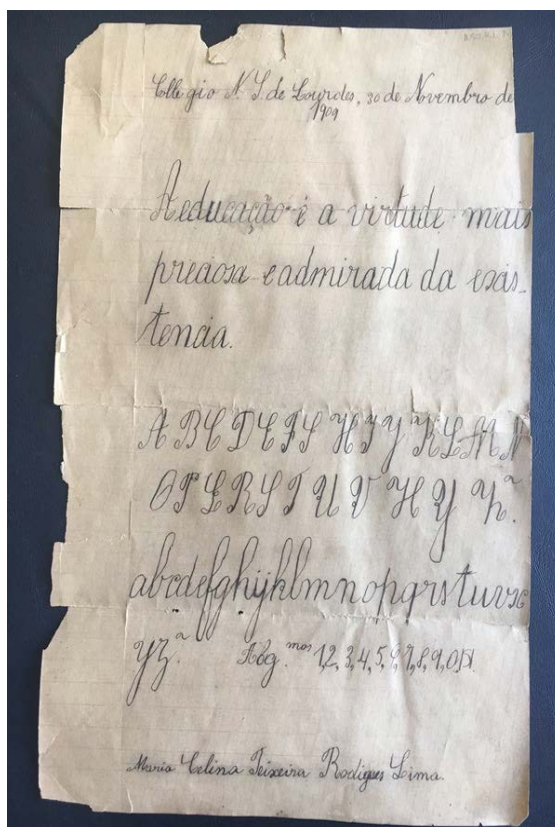 Collegio N. S. de Lourdes, 30 de Novembro de
1909
A educação é a virtude mais
preciosa e admirada da exis-
tencia.
A B C D E F G H I J K L M N
O P Q R S T U V X Y Z.
abcdefghijklmnopqrstuvx
yz. Alg.mos 1,2,3,4,5,6,7,8,9,0,
Maria Celina Teixeira Rodigues Lima.